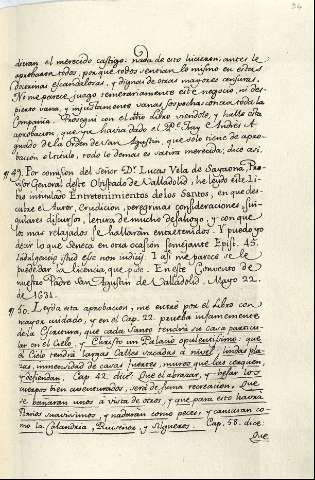 94
dieran el merecido castigo. nada de esto hicieron, antes le
aprobaron todos, porque todos sentian lo mismo en estas
Doctrinas escandalosas, y dignas de otras mayores censuras.
Ni me parece juzgo temerariamente este negocio, ni des-
pierto vana, y injustamente vanas sospechas contra toda la
Compañia. Prosegui con el año Libro viendole, y hallè esta
aprobacion, que ya havia dado el P. Fray Andrès A-
guido de la Orden de San Agustin, que solo tiene de apro-
bacion el titulo, todo lo demas es satira merecida; dice asi,
49. Por comision del señor D. Lucas Vela de Sayaona, Pro-
visor General deste Obispado de Valladolid, he leydo este Li-
bro intitulado Entretenimientos de los Santos, en que des-
cubre el Autor Erudicion, peregrinas consideraciones, sin-
gulares discursos, letura de mucho desahogo, y con que
los mas relaxados se hallaràn entretenidos. Y puedo yo
decir lo que Seneca en otra ocasion semejante Epist. 45.
Indulgentiæ istud esse non iudicij. I asi me parece se le
puede dar la licencia, que pide. En este Convento de
nuestro Padre San Agustin de Valladolid. Mayo 22.
de 1631.
50. Leyda esta aprobacion, me entrè por el Libro con
mayor cuidado, y en el Cap. 22. prueba infamemente
de la Escritura, que cada Santo tendrà su casa particu-
lar en el Cielo, y Christo un Palacio opulentissimo: que
el Cielo tendrà largas Calles sacadas a nivel, lindas pla-
zas, inmensidad de casas fuertes, muros que las cerquen,
y defiendan. Cap. 42. dice. Que el abrazar, y besar los
cuerpos bien aventurados, serà de suma recreacion. Que
se bañaràn unos à vista de otros, y que para esto havrà
Baños suavissimos, y nadaràn como peces, y cantaràn co-
mo la Calandria, Ruiseñor, y Xilgueros. Cap. 58. dice.
Que